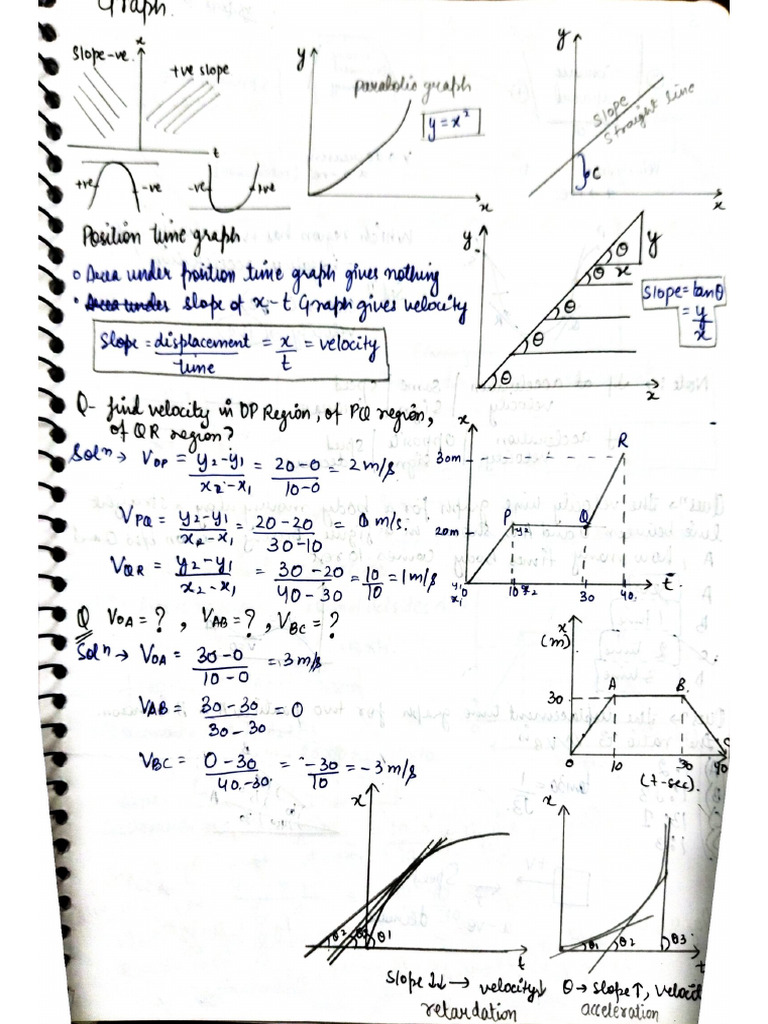 Graph.
x
Slope -ve.
+ve slope
t
+ve
-ve
-ve
+ve
y
parabolic graph
y = x²
x
y
Slope
Straight line
C
x
Position time graph
o Area under position time graph gives nothing
• Area under slope of x-t Graph gives velocity
Slope = displacement/time = x/t = velocity
y
θ
y
θ
x
θ
θ
θ
x
Slope = tanθ
= y/x
Q- find velocity in OP Region, of PQ region,
of QR region?
Solⁿ → VOP = y2-y1/x2-x1 = 20-0/10-0 = 2 m/s
VPQ = y2-y1/x2-x1 = 20-20/30-10 = 0 m/s.
VQR = y2-y1/x2-x1 = 30-20/40-30 = 10/10 = 1 m/s
x
R
30m
P
y2
Q
20m
y1
x1
0
10
x2
30
40
t
Q VOA = ? , VAB = ? , VBC = ?
Solⁿ → VOA = 30-0/10-0 = 3 m/s
VAB = 30-30/30-30 = 0
VBC = 0-30/40-30 = -30/10 = -3 m/s
x
(m)
A
B
30
C
0
10
30
40
(t-sec).
x
θ2
θ
θ1
t
Slope ↓↓ → velocity↓
retardation
x
θ1
θ2
θ3
t
θ → slope ↑, velocit
acceleration